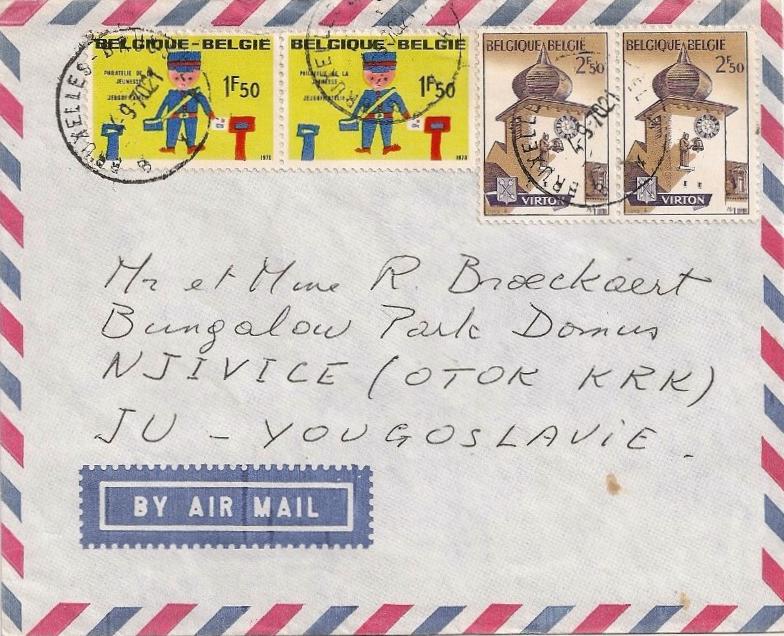 BELGIQUE-BELGIE
PHILATELIE DE LA
JEUNESSE
JEUGDFILATELIE
1F50
1970
BELGIQUE-BELGIE
PHILATELIE DE LA
JEUNESSE
JEUGDFILATELIE
1F50
1970
BELGIQUE BELGIË
2F50
VIRTON
BELGIQUE BELGIË
2F50
VIRTON
BRUXELLES
4-9-7021
BRUXELLES
4-9-7021
Mr et Mme R. Broeckaert
Bungalow Park Domus
NJIVICE (OTOK KRK)
JU - YOUGOSLAVIE.
BY AIR MAIL